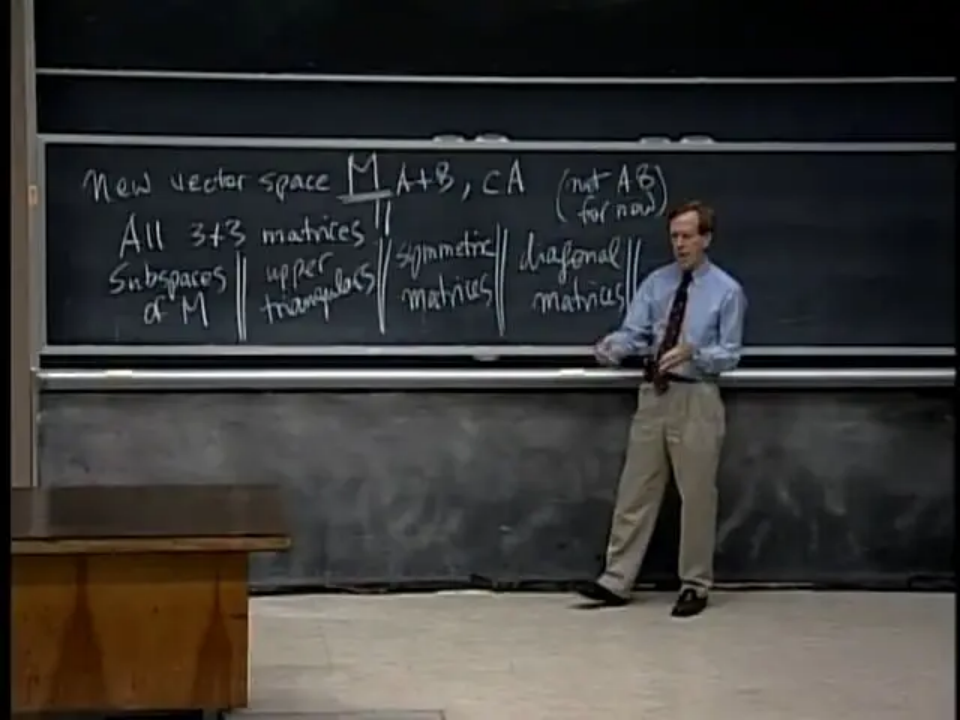 New vector space M A+B, cA (not AB for now)
All 3x3 matrices
Subspaces of M || upper triangulars || symmetric matrices || diagonal matrices ||